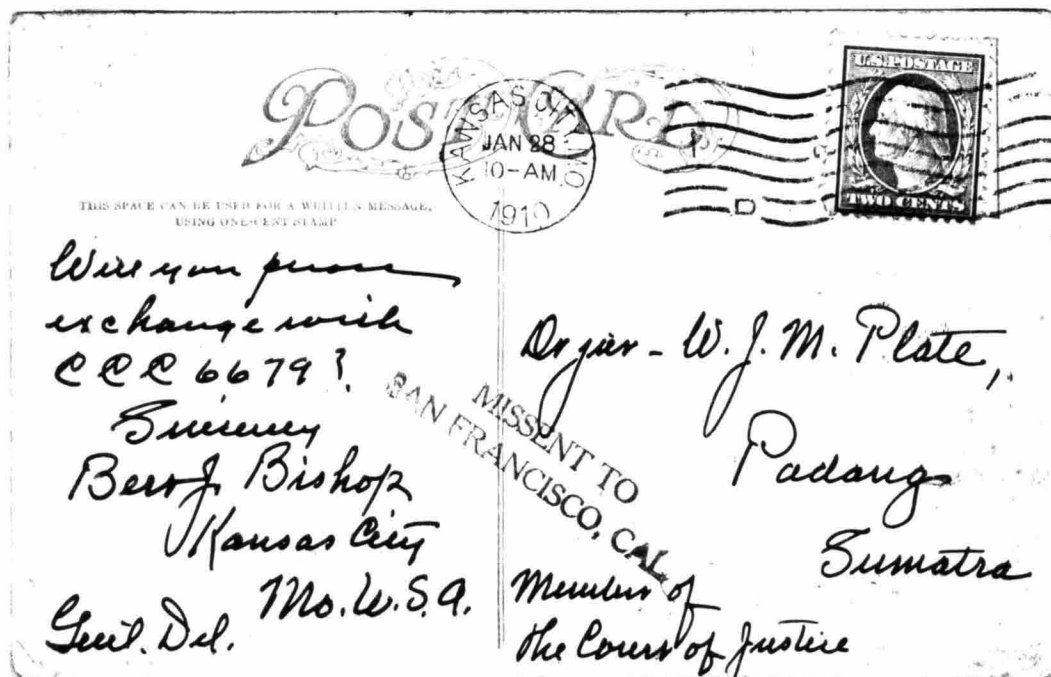 POST CARD
KANSAS CITY, MO.
JAN 28
10-AM
1910
U.S. POSTAGE
TWO CENTS
D
THIS SPACE CAN BE USED FOR A WRITTEN MESSAGE,
USING ONE-CENT STAMP
Will you please
exchange with
CCC 6679?
Sincerely
Bert J. Bishop
Kansas City
Mo. U.S.A.
Genl. Del.
MISSENT TO
SAN FRANCISCO, CAL.
W. J. M. Plate,
Padang
Sumatra
Member of
the Court of Justice